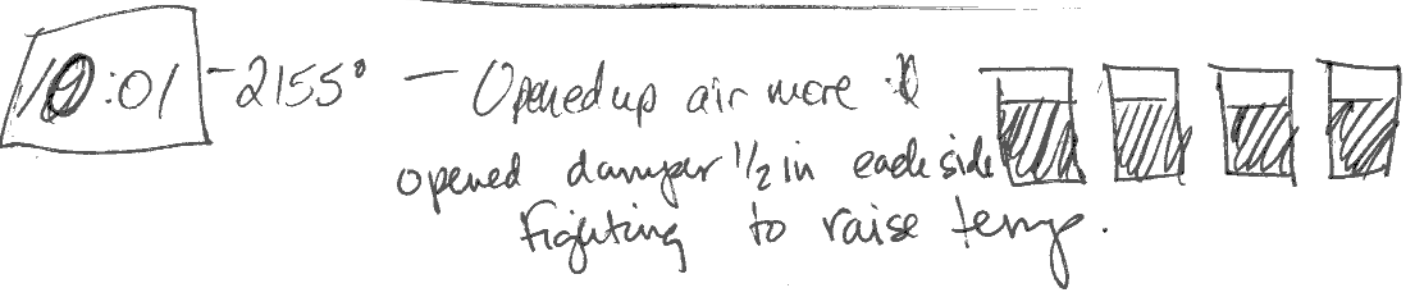 10:01 - 2155° — Opened up air more &
opened damper 1/2 in each side
Fighting to raise temp.